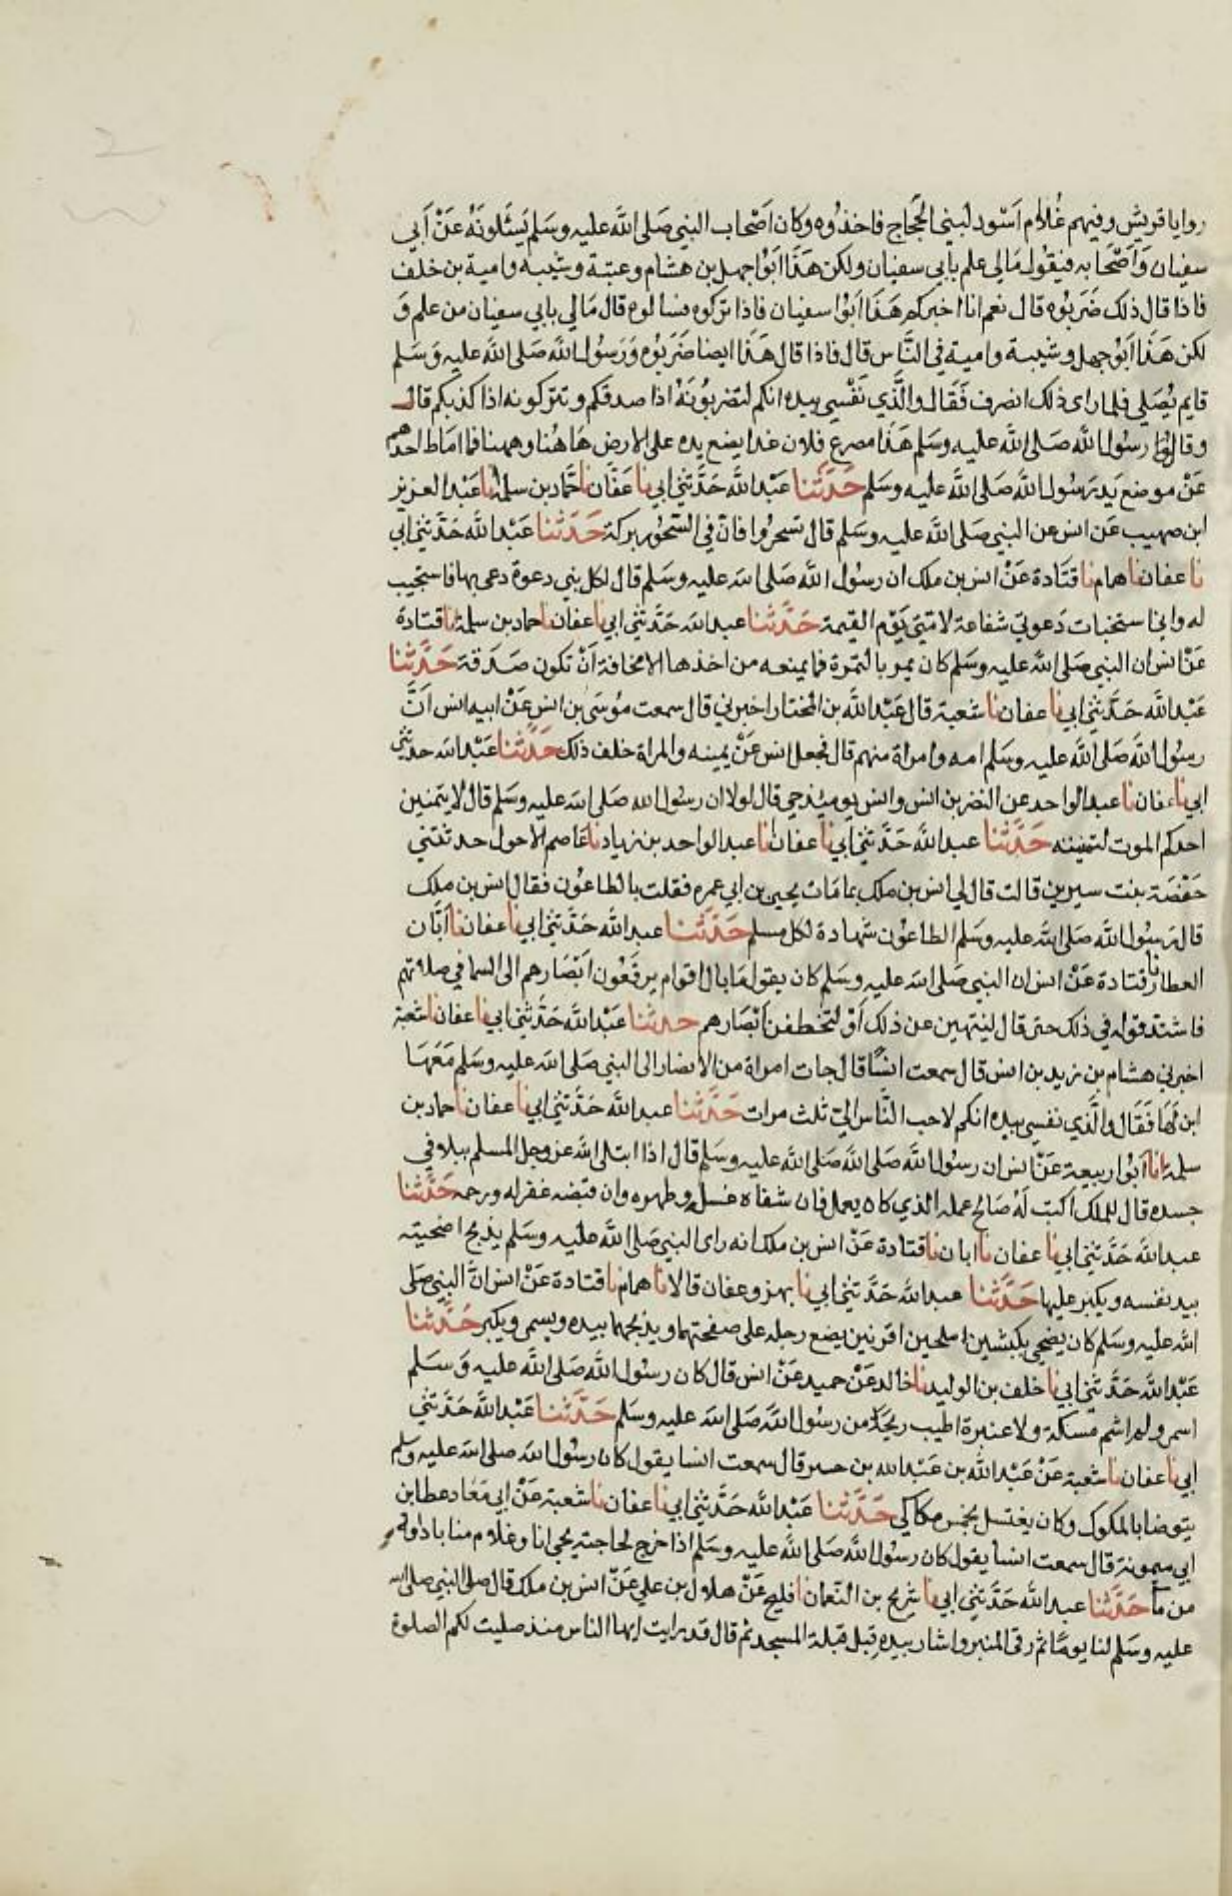 روايا قريش وفيهم غُلام اَسْود لبني الحَجاج فاخذُوه وكان اَصْحاب النبي صَلى الله عليه وسَلم يَسئَلونَهُ عَنْ اَبي
سفيان وَاَصْحابه فيقول مَالي علم بابي سفيان ولكن هَذَا ابَوُا جهل بن هشام وعتبة وشيبه وامية بن خلف
فاذا قال ذلك ضَرَبُوه قال نعم انا اخبركم هَذَا ابَوُا سفيان فاذا تركوه فسالوه قال مَالي بابي سفيان من علم وَ
لكن هَذَا ابَوُ جهل وشيبة وامية في النَّاس قال فاذا قال هَذَا ايضا ضَرَبُوه وَرَسُول الله صَلى الله عليه وَسَلم
قايم يُصَلي فلما راى ذلك انصرف فَقَال والَّذي نَفْسي بيده انكم لتضربُونَهُ اذا صدقكم وتتركونه اذا كذبكم قال
وقال رسُول الله صَلى الله عليه وسَلم هَذَا مصرع فلان غدا يضع يده على الارض هَاهُنا وههنا فما امَاط احدهم
عَنْ موضع يَد رَسُول الله صَلى الله عليه وسَلم حَدَّثنا عَبْد الله حَدَّثني ابي نا عَفَّان نا حَمَّاد بن سلمة نا عَبْد العزيز
ابن صهيب عَن انس عن النبي صَلى الله عليه وسَلم قال تسحروا فان في السَّحُور بركة حَدَّثنا عَبْد الله حَدَّثني ابي
نا عفان نا همام نا قتَادة عَنْ انس بن ملك ان رسُول الله صَلى الله عليه وسَلم قال لكل نبي دعوة دعى بها فاستجيب
له واني استخبات دَعوتي شفاعة لامّتي يَوْم القيمة حَدَّثنا عبد الله حَدَّثني ابي نا عفان نا حماد بن سلمة نا قتادة
عَنْ انس ان النبي صَلى الله عليه وسَلم كان يمر بالتمرة فما يمنعه من اخذها الا مخافة اَنْ تكون صَدَقة حَدَّثنا
عَبْد الله حَدَّثني ابي نا عفان نا شعبة قال عَبْد الله بن المختار اخبرني قال سمعت مُوسَى بن انس عَنْ ابيه انس اَنَّ
رسُول الله صَلى الله عليه وسَلم امه وامراة منهم قال فجعل انس عَنْ يمينه والمراة خلف ذلك حَدَّثنا عَبْد الله حدثني
ابي نا عفان نا عبد الواحد عن النضر بن انس وانس يومئذ حي قال لولا ان رسُول الله صَلى الله عليه وسَلم قال لا يتمنين
احدكم الموت لتمنيته حَدَّثنا عبد الله حَدَّثني ابي نا عفان نا عبد الواحد بن زياد نا عَاصم الاحول حدثتني
حَفْصَة بنت سيرين قالت قال لي انس بن ملك بما مَات يحيى بن ابي عمره فقلت بالطاعُون فقال انس بن ملك
قال رسُول الله صَلى الله عليه وسَلم الطاعُون شهادة لكل مسلم حَدَّثنا عبد الله حَدَّثني ابي نا عفان نا اَبَان
العطار نا قتادة عَنْ انس ان النبي صَلى الله عليه وسَلم كان يقول مَا بال اقوام يرفَعُون اَبْصَارهم الى السما في صلاتهم
فاشتد قوله في ذلك حتى قال لينتهين عن ذلك اَوْ لتُخطفن اَبْصَارهم حدثنا عَبْد الله حَدَّثني ابي نا عفان نا شعبة
اخبرني هشام بن زيد بن انس قال سمعت انسًا قال جات امراة من الانصار الى النبي صَلى الله عليه وسَلم مَعَهَا
ابن لَهَا فَقَال والَّذي نفسي بيده انكم لاحب النَّاس اليّ ثلث مرات حَدَّثنا عبد الله حَدَّثني ابي نا عفان نا حماد بن
سلمة انا ابَوُا ربيعة عَنْ انس ان رسُول الله صَلى الله صَلى الله عليه وسَلم قال اذا ابتلى الله عز وجل المسلم ببلا في
جسده قال للملك اكتب لَهُ صَالح عمله الذي كان يعمل فان شفاه غسله وطهره وان قبضه غفر له ورحمه حَدَّثنا
عبد الله حَدَّثني ابي نا عفان نا ابان نا قتادة عَنْ انس بن ملك انه راى النبي صَلى الله عليه وسَلم يذبح اضحيته
بيد نفسه ويكبر عليها حَدَّثنا عبد الله حَدَّثني ابي نا بهز وعفان قالا نا همام نا قتادة عَنْ انس انَّ النبي صَلى
الله عليه وسَلم كان يضحي بكبشين املحين اقرنين يضع رجله على صفحتهما ويذبحهما بيده ويسمى ويكبر حَدَّثنا
عَبْد الله حَدَّثني ابي نا خلف بن الوليد نا خالد عَنْ حميد عَنْ انس قال كان رسُول الله صَلى الله عليه وَسَلم
اسمر ولم اشم مسكة ولا عنبرة اطيب ريحًا من رسُول الله صَلى الله عليه وسَلم حَدَّثنا عَبْد الله حَدَّثني
ابي نا عفان نا شعبة عَنْ عَبْد الله بن عَبْد الله بن حبر قال سمعت انسا يقول كان رسُول الله صلى الله عليه وسلم
يتوضا بالمكوك وكان يغتسل بخمس مكاكي حَدَّثنا عَبْد الله حَدَّثني ابي نا عفان نا شعبة عَنْ ابي مَعَاد عطا بن
ابي ميمونة قال سمعت انسا يقول كان رسُول الله صَلى الله عليه وسَلم اذا خرج لحاجته يجى انا وغلام منا باداوة
من ما حَدَّثنا عبد الله حَدَّثني ابي نا شريح بن النعمان نا فليح عَنْ هلال بن علي عَنْ انس بن ملك قال صلى النبي صلى الله
عليه وسَلم لنا يومًا ثم رقى المنبر واشار بيده قِبل قبلة المسجد ثم قال قد رايت ايها الناس منذ صليت لكم الصلوة